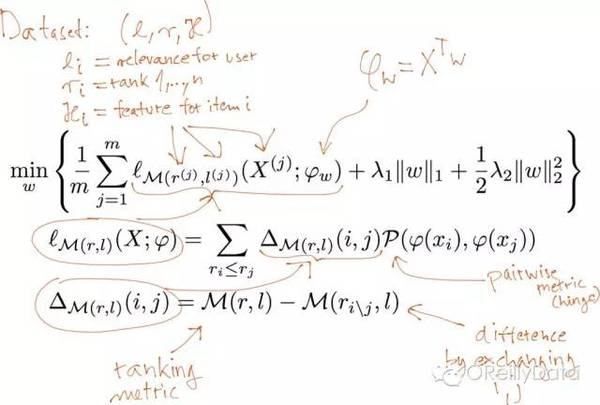 Dataset: (l, r, X)
l_i = relevance for user
r_i = rank 1,..,n
x_i = feature for item i
φ_w = X^T w
min_w { 1/m ∑_{j=1}^{m} ℓ_{M(r^{(j)}, l^{(j)})}(X^{(j)}; φ_w) + λ_1‖w‖_1 + 1/2 λ_2‖w‖_2^2 }
ℓ_{M(r,l)}(X; φ) = ∑_{r_i ≤ r_j} Δ_{M(r,l)}(i, j) P(φ(x_i), φ(x_j))
pairwise
metric
(hinge)
Δ_{M(r,l)}(i, j) = M(r, l) − M(r_{i\j}, l)
ranking
metric
difference
by exchanging
i, j
OReillyData